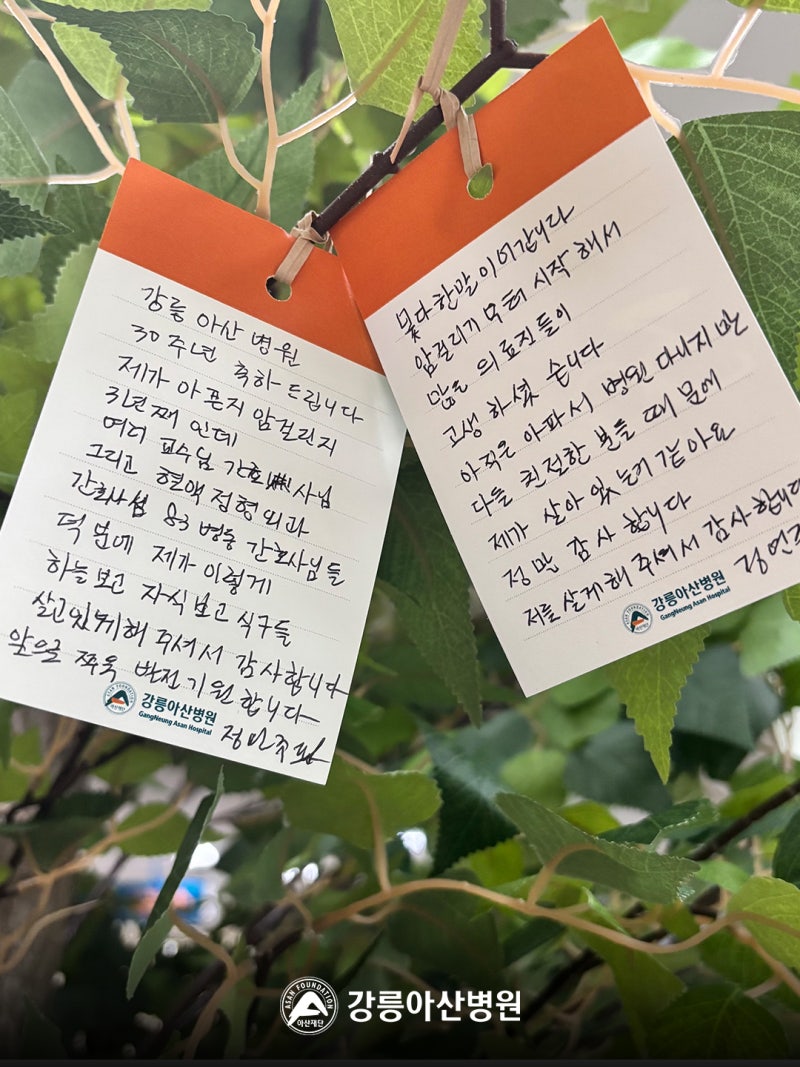 강릉 아산 병원
30주년 축하 드립니다
제가 아픈지 암걸린지
3년째 인데
여러 교수님 간호사님
그리고 혈액 정형외과
간호사쌤 83병동 간호사님들
덕분에 제가 이렇게
하늘보고 자식보고 식구들
살고있게해 주셔서 감사합니다
앞으로 쭈욱 발전기원합니다
강릉아산병원
GangNeung Asan Hospital
못다한말 이어갑니다
암걸리기 부터 시작해서
많은 의료진들이
고생 하셨습니다
아직은 아파서 병원 다니지만
다들 친절한 분들 때문에
제가 살아 있는거 같아요
정만 감사합니다
저를 살게해 주셔서 감사합니다
강릉아산병원
GangNeung Asan Hospital
ASAN FOUNDATION
아산재단
강릉아산병원